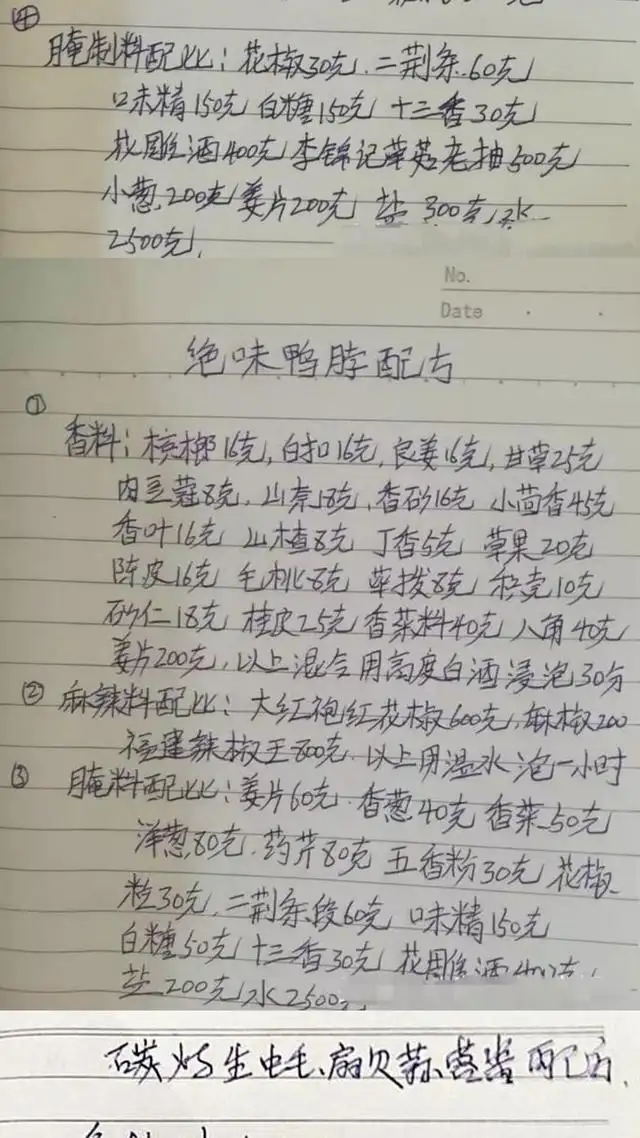 ④
腌制料配比：花椒30克、二荆条60克
口味精150克 白糖150克 十三香30克
花雕酒400克 李锦记草菇老抽500克
小葱200克 姜片200克 盐300克 水
2500克.
No.
Date
绝味鸭脖配方
①
香料：槟榔16克，白扣16克，良姜16克，甘草25克
肉豆蔻8克，山奈18克，香砂16克 小茴香45克
香叶16克 山楂8克 丁香5克 草果20克
陈皮16克 毛桃8克 荜拨8克 枳壳10克
砂仁18克 桂皮25克 香菜料40克 八角40克
姜片200克，以上混合用高度白酒浸泡30分
② 麻辣料配比：大红袍红花椒600克，麻椒200
福建辣椒王800克，以上用温水泡一小时
③ 腌料配比：姜片60克 香葱40克 香菜50克
洋葱80克，药芹80克 五香粉30克 花椒
粒30克，二荆条段60克 口味精150克
白糖50克 十三香30克 花雕酒
盐200克 水2500
碳烤生蚝、扇贝蒜蓉酱配方